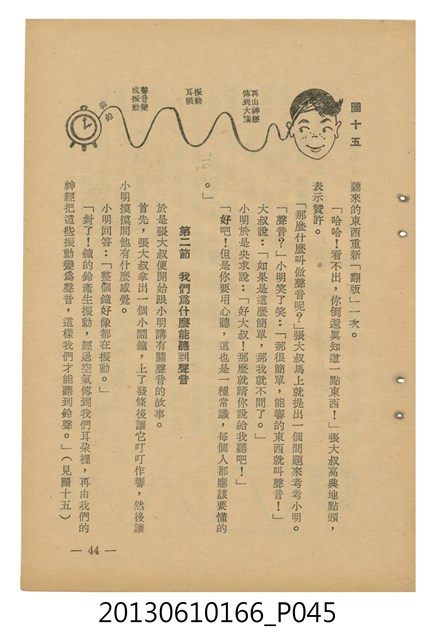 圖十五
再由神經
傳到大腦
振動
耳膜
聲音變
成振動
聽來的東西重新「翻版」一次。
「哈哈！看不出，你倒還眞知道一點東西！」張大叔高興地點頭，
表示贊許。
「那麼什麼叫做聲音呢？」張大叔馬上就提出一個問題來考考小明。
「聲音？」小明笑了笑：「那很簡單，能響的東西就叫聲音！」
大叔說：「如果是這麼簡單，那我就不問了。」
小明於是央求說：「好大叔！那麼就請你說給我聽吧！」
「好吧！但是你要用心聽，這也是一種常識，每個人都應該要懂的
。」
第二節　我們爲什麼能聽到聲音
於是張大叔便開始跟小明講有關聲音的故事。
首先，張大叔拿出一個小鬧鐘，上了發條後讓它叮叮作響，然後讓
小明摸摸問他有什麼感覺。
小明回答：「整個鐘好像都在振動。」
「對了！鐘的鈴產生振動，經過空氣傳到我們耳朶裡，再由我們的
神經把這些振動變爲聲音，這樣我們才能聽到鈴聲。」（見圖十五）
— 44 —
20130610166_P045